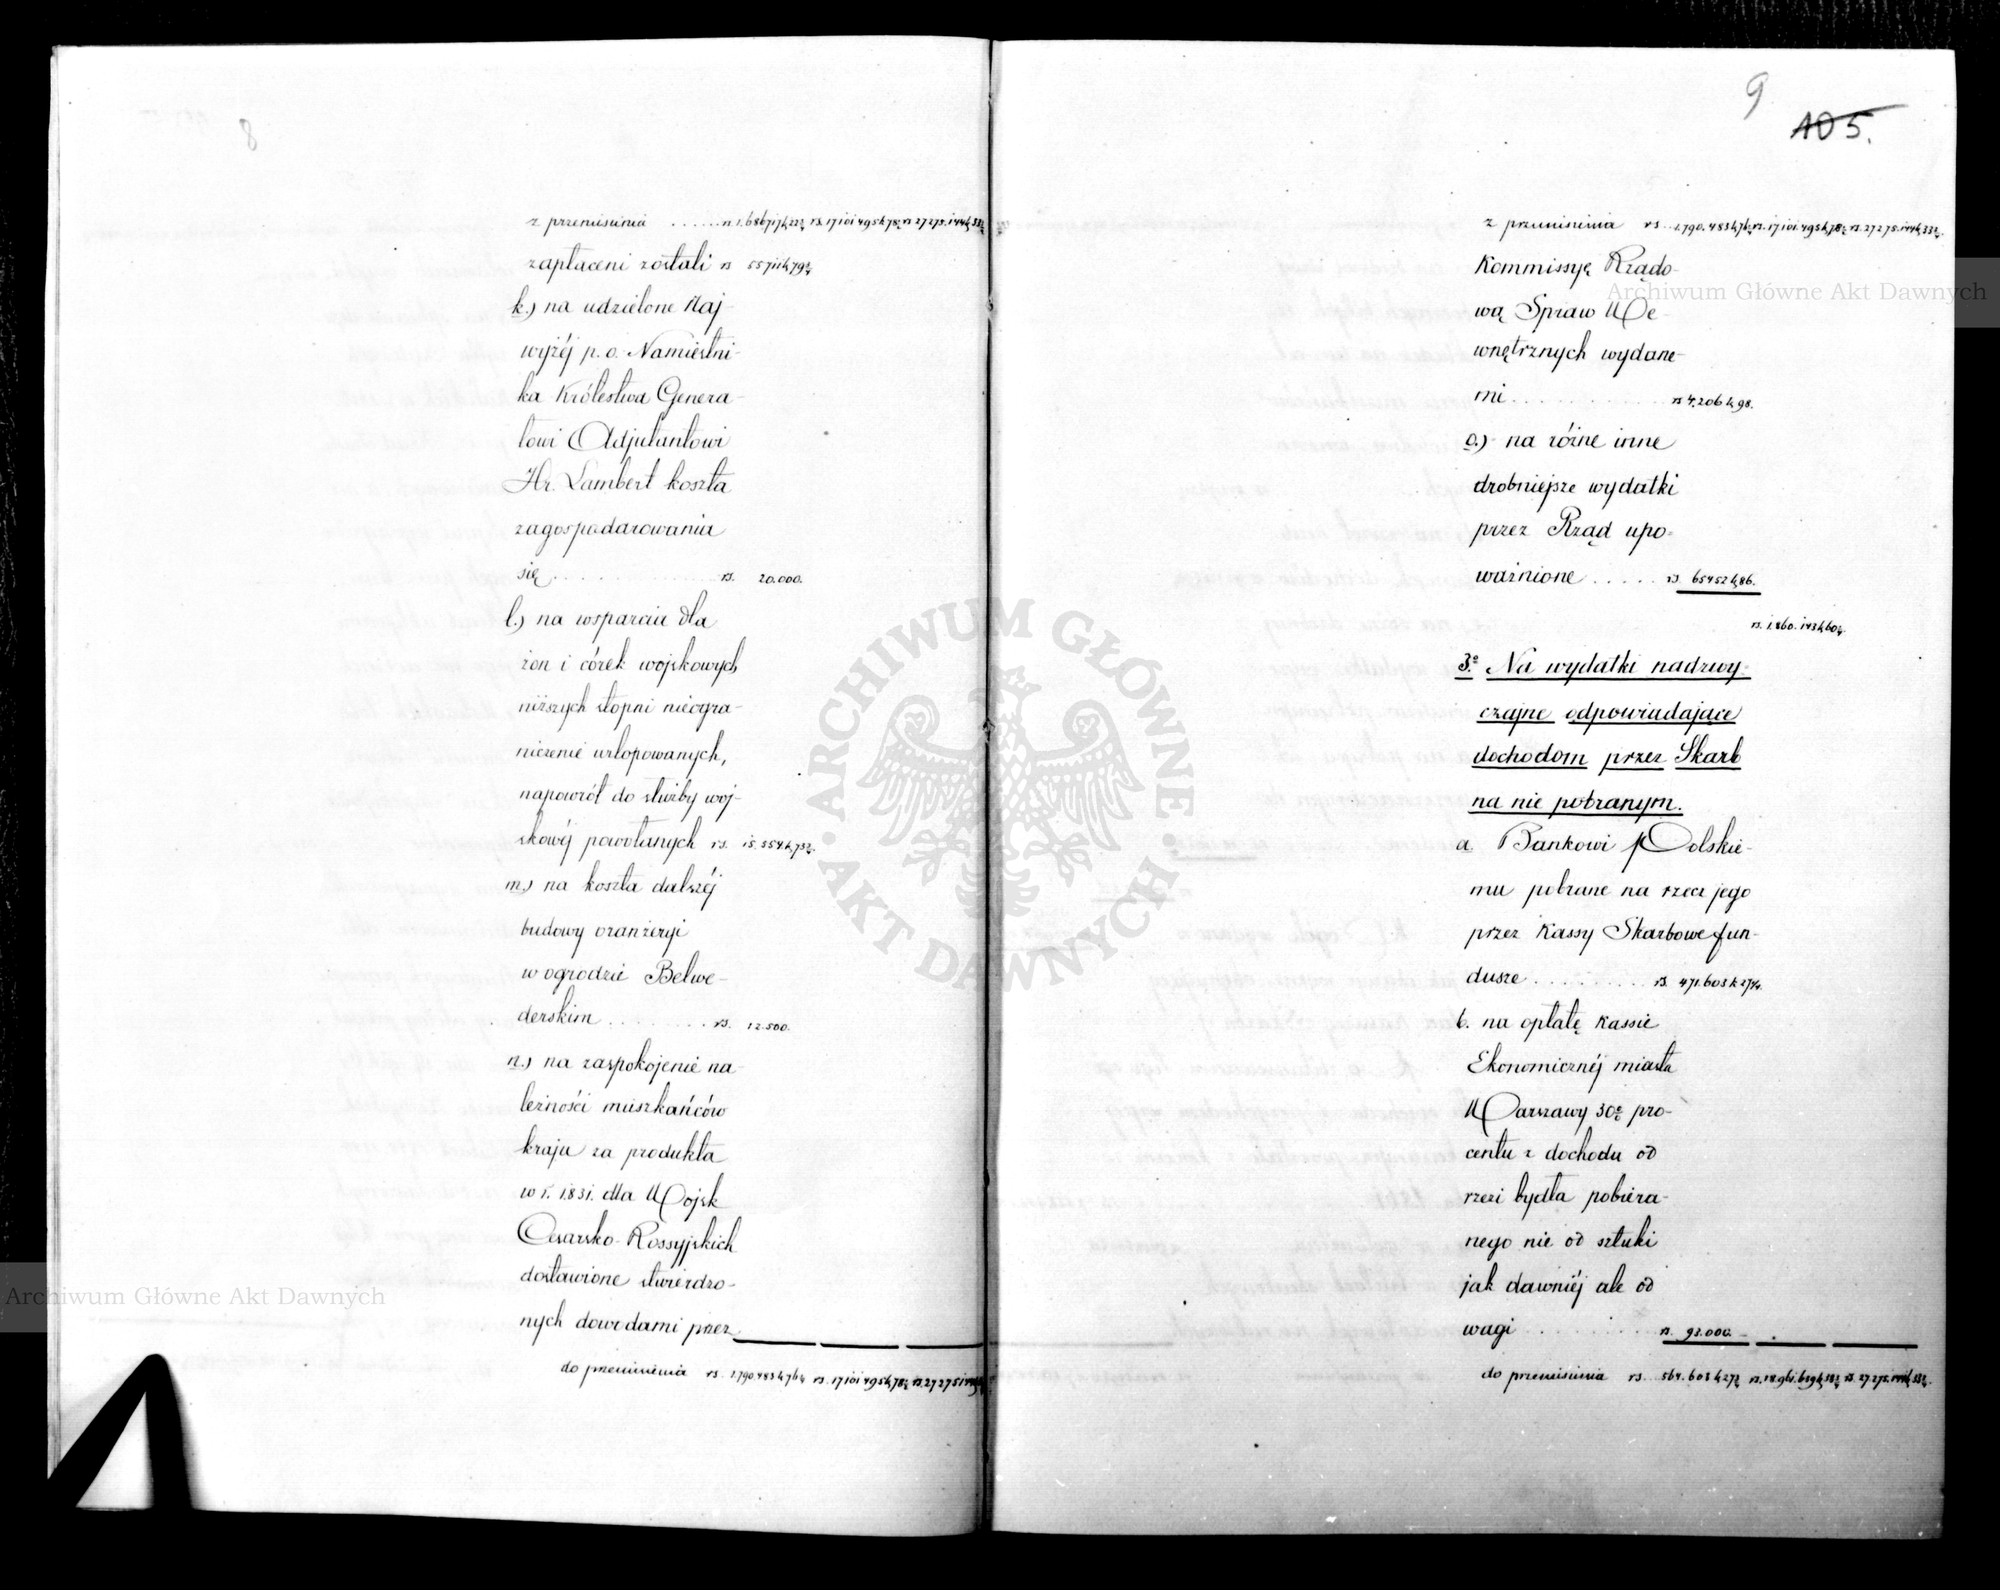 8
z przeniesienia ...... rs 1.686717 k 22½ rs. 17101495 k 78½ rs 27275.144 k 33½
zapłaceni zostali rs 55711 k 79½
k.) na udzielone Naj-
wyżéj p. o. Namiestni-
ka Królestwa Genera-
łowi Adjutantowi
Hr. Lambert koszta
zagospodarowania
się .............. rs. 20.000.
l.) na wsparcia dla
żon i córek wojskowych
niższych stopni nieogra-
niczenie urlopowanych,
napowrót do służby woj-
skowéj powołanych rs. 15.554 k. 73½.
m.) na koszta dalszéj
budowy oranżeryi
w ogrodzie Belwe-
derskim ......... rs. 12.500.
n.) na zaspokojenie na-
leżności mieszkańców
kraju za produkta
w r. 1831. dla Wojsk
Cesarsko-Rossyjskich
dostawione stwierdzo-
nych dowodami przez
do przeniesienia rs. 1.790.483 k 76¼ rs. 17101495 k 78½ rs. 27275144
9
105.
z przeniesienia rs. 1.790.483 k 76¼ rs. 17101.495 k 78½ rs. 27275.144 k 33½.
Kommissyę Rządo-
wą Spraw We-
wnętrznych wydane-
mi .............. rs 4.206 k 98.
o.) na różne inne
drobniejsze wydatki
przez Rząd upo-
ważnione ..... rs. 65452 k 86.
rs. 1.860.143 k 60¼.
3.o Na wydatki nadzwy-
czajne odpowiadające
dochodom przez Skarb
na nie pobranym.
a. Bankowi Polskie-
mu pobrane na rzecz jego
przez Kassy Skarbowe fun-
dusze .......... rs. 471.603 k 27½.
b. na opłatę Kassie
Ekonomicznéj miasta
Warszawy 30% pro-
centu z dochodu od
rzezi bydła pobiera-
nego nie od sztuki
jak dawniéj ale od
wagi ........... rs. 93.000.
do przeniesienia rs. 564.603 k 27½ rs. 18.961.639 k 38¾ rs. 27.275.144 k 33½.
Archiwum Główne Akt Dawnych
Archiwum Główne Akt Dawnych
ARCHIWUM GŁÓWNE
AKT DAWNYCH